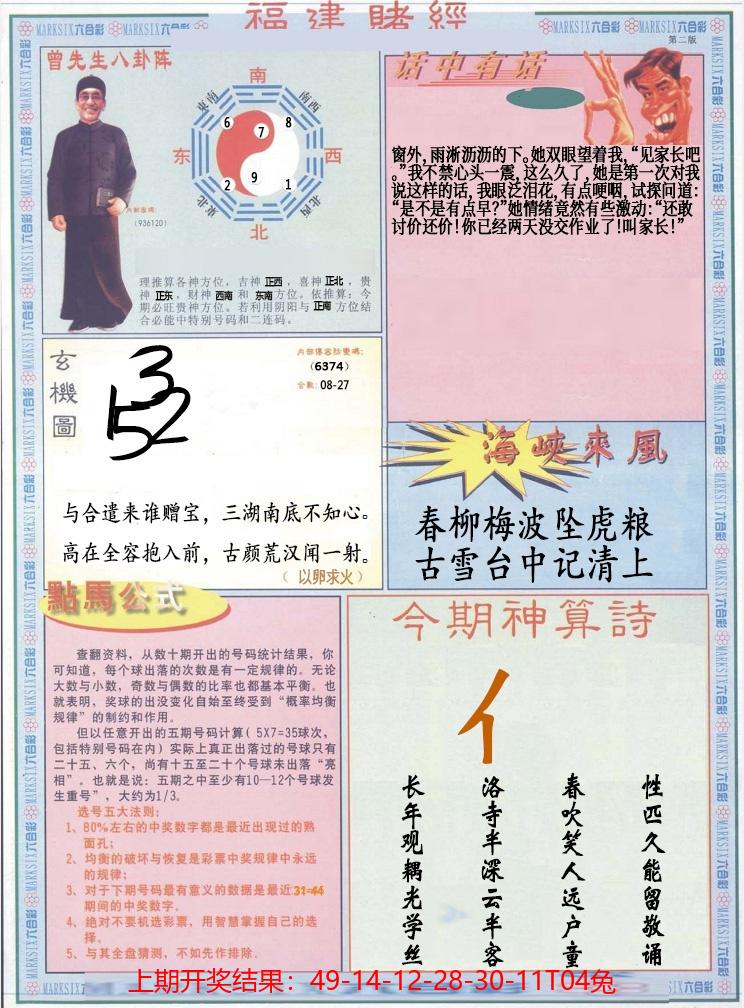 福建賭經
MARKSIX六合彩
第二版
曾先生八卦阵
南
东南
南西
东
西
东北
西北
北
6
7
8
2
9
1
内部密碼:
(936120)
理推算各神方位，吉神 正西 ，喜神 正北 ，贵
神 正东 ，财神 西南 和 东南 方位。依推算：今
期必旺贵神方位。若利用阴阳与 正南 方位结
合必能中特别号码和二连码。
话中有话
窗外,雨淅沥沥的下。她双眼望着我,“见家长吧
。”我不禁心头一震,这么久了,她是第一次对我
说这样的话,我眼泛泪花,有点哽咽,试探问道:
“是不是有点早?”她情绪竟然有些激动:“还敢
讨价还价!你已经两天没交作业了!叫家长!”
玄機圖
3
52
(6374)
合數: 08-27
与合遣来谁赠宝，三湖南底不知心。
高在全容抱入前，古颜荒汉闻一射。
（ 以卵求火）
海峽來風
春柳梅波坠虎粮
古雪台中记清上
點馬公式
查翻资料，从数十期开出的号码统计结果，你
可知道，每个球出落的次数是有一定规律的。无论
大数与小数，奇数与偶数的比率也都基本平衡。也
就表明，奖球的出没变化自始至终受到“概率均衡
规律”的制约和作用。
但以任意开出的五期号码计算（5X7=35球次，
包括特别号码在内）实际上真正出落过的号码只有
二十五、六个，尚有十五至二十个号球未出落“亮
相”。也就是说：五期之中至少有10—12个号球发
生重号”，大约为1/3。
选号五大法则:
1、80%左右的中奖数字都是最近出现过的熟
面孔;
2、均衡的破坏与恢复是彩票中奖规律中永远
的规律;
3、对于下期号码最有意义的数据是最近31=44
期间的中奖数字。
4、绝对不要机选彩票，用智慧掌握自己的选
择。
5、与其全盘猜测，不如先作排除.
今期神算詩
亻
性匹久能留敬诵
春吹笑人远户童
洛寺半深云半客
长年观耦光学丝
上期开奖结果：49-14-12-28-30-11T04兔